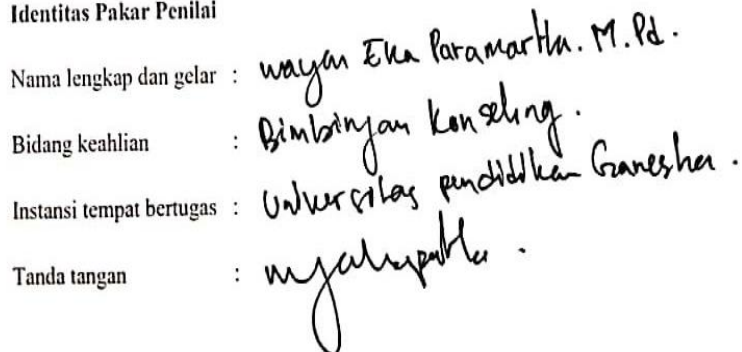 Identitas Pakar Penilai
Nama lengkap dan gelar : Wayan Eka Paramartha. M.Pd.
Bidang keahlian : Bimbingan Konseling.
Instansi tempat bertugas : Universitas pendidikan Ganesha.
Tanda tangan :